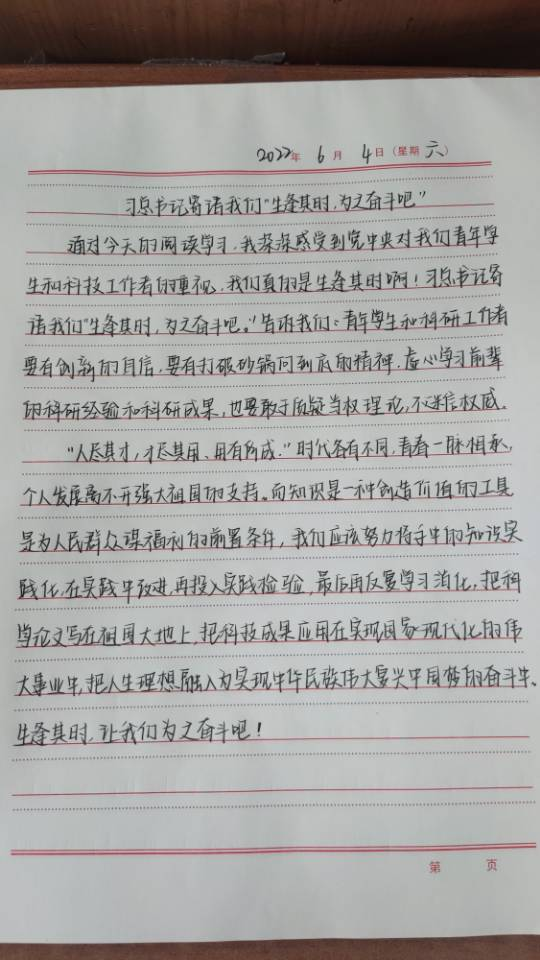 2022年 6月 4日(星期六)
习总书记寄语我们"生逢其时,为之奋斗吧"
通过今天的阅读学习,我深深感受到党中央对我们青年学
生和科技工作者的重视,我们真的是生逢其时啊!习总书记寄
语我们"生逢其时,为之奋斗吧。"告诉我们:青年学生和科研工作者
要有创新的自信,要有打破砂锅问到底的精神,虚心学习前辈
的科研经验和科研成果,也要敢于质疑当权理论,不迷信权威。
"人尽其才,才尽其用、用有所成。"时代各有不同,青春一脉相承,
个人发展离不开强大祖国的支持。而知识是一种创造价值的工具
是为人民群众谋福利的前置条件,我们应该努力将手中的知识实
践化,在实践中改进,再投入实践检验,最后再反复学习消化,把科
学论文写在祖国大地上,把科技成果应用在实现国家现代化的伟
大事业中,把人生理想融入为实现中华民族伟大复兴中国梦的奋斗中。
生逢其时,让我们为之奋斗吧!
第 页